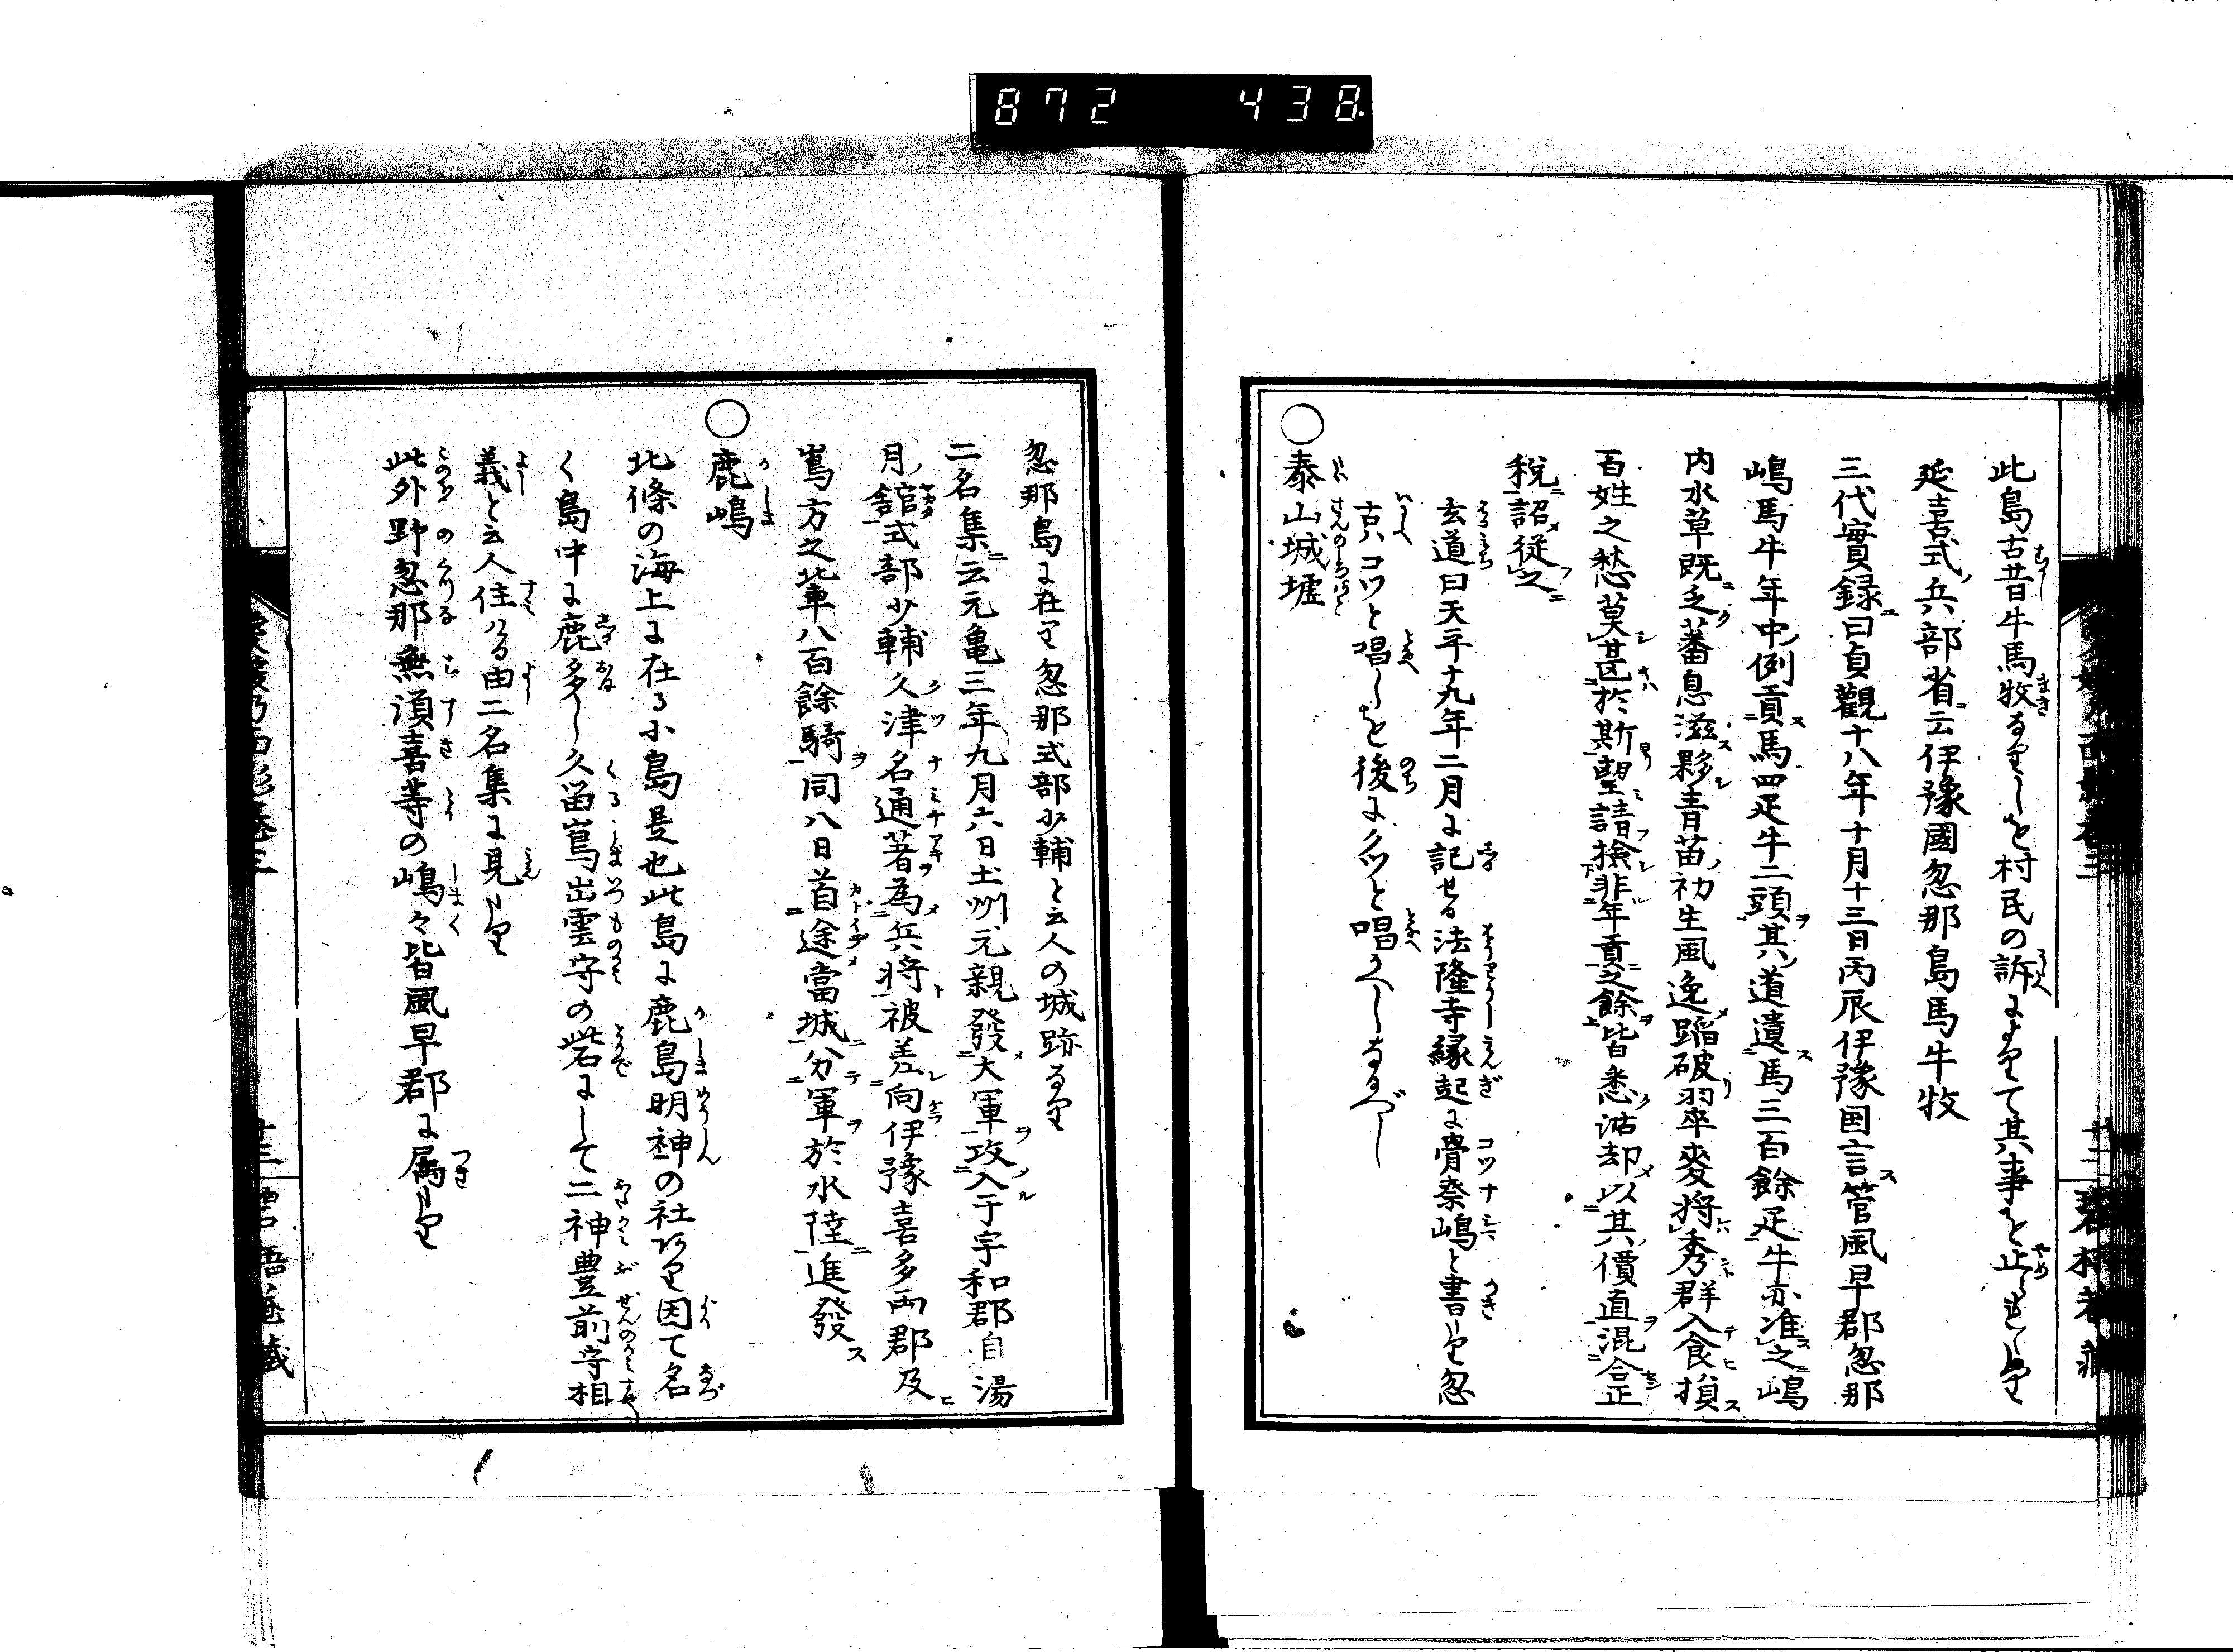 872 438
此島古昔牛馬牧ありしを村民の訴によりて其事を止られたり
延喜式ノ兵部省ニ云伊豫國忽那島馬牛牧
三代實録ニ曰貞觀十八年十月十三日丙辰伊豫国言ス管風早郡忽那
嶋馬牛年中例貢ス馬四疋牛二頭其ノ道遺馬三百餘疋牛亦准之嶋
内水草既乏蕃息滋夥青苗初生風逸蹈破翠麥将秀群入食損ス
百姓之愁莫甚於斯望請撿非年貢之餘皆悉沽却以其價直混合正
税詔従之
玄道曰天平十九年二月に記せる法隆寺縁起に骨奈嶋と書り忽
古ハコツと唱しを後にクツと唱へしなるべし
○泰山城墟
忽那島に在り忽那式部少輔と云人の城跡なり
二名集ニ云元亀三年九月六日土州元親發大軍攻入于宇和郡自湯
月ノ舘式部少輔久津名通著為兵将被差向伊豫喜多両郡及
嶌方之軍八百餘騎同八日首途當城分軍於水陸進發ス
○鹿嶋
北條の海上に在る小島是也此島に鹿島明神の社あり因て名
く島中に鹿多し久留嶌出雲守の砦にして二神豊前守相
義と云人住ける由二名集に見えたり
此外野忽那無須喜等の嶋々皆風早郡に属たり